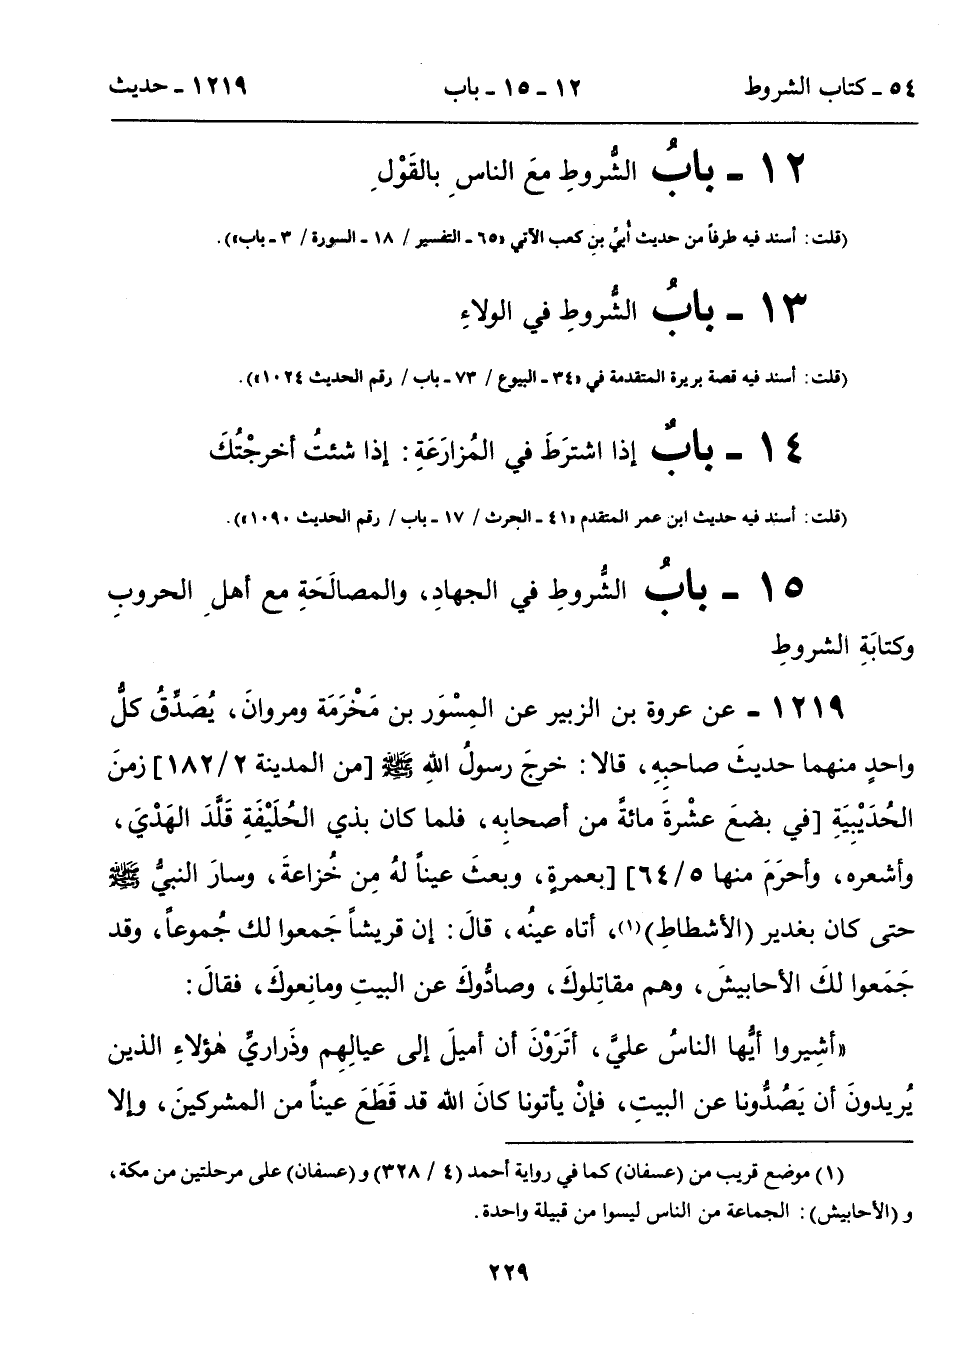 ٥٤ ـ كتاب الشروط ١٢ ـ ١٥ ـ باب ١٢١٩ ـ حديث
١٢ ـ بابُ الشُّروطِ معَ الناسِ بالقَوْلِ
(قلت: أسند فيه طرفاً من حديث أبيُّ بنِ كعب الآتي «٦٥ ـ التفسير / ١٨ ـ السورة / ٣ ـ باب»).
١٣ ـ بابُ الشُّروطِ في الولاءِ
(قلت: أسند فيه قصة بريرة المتقدمة في «٣٤ ـ البيوع / ٧٣ ـ باب / رقم الحديث ١٠٢٤»).
١٤ ـ بابٌ إذا اشترَطَ في المُزارَعَةِ: إذا شئتُ أخرجْتُكَ
(قلت: أسند فيه حديث ابن عمر المتقدم «٤١ ـ الحرث / ١٧ ـ باب / رقم الحديث ١٠٩٠»).
١٥ ـ بابُ الشُّروطِ في الجهادِ، والمصالَحَةِ مع أهلِ الحروبِ
وكتابَةِ الشروطِ
١٢١٩ ـ عن عروة بن الزبير عن المِسْوَر بن مَخْرَمَة ومروانَ، يُصَدِّقُ كلُّ
واحدٍ منهما حديثَ صاحبِهِ، قالا: خرجَ رسولُ اللهِ ﷺ [من المدينة ١٨٢/٢] زمنَ
الحُدَيْبِيَةِ [في بضعَ عشْرةَ مائةً من أصحابِه، فلما كان بذي الحُلَيْفَةِ قَلَّدَ الهَدْيَ،
وأشعره، وأحرَمَ منها ٦٤/٥] [بعمرةٍ، وبعثَ عيناً لهُ مِن خُزاعةَ، وسارَ النبيُّ ﷺ
حتى كان بغدير (الأشطاطِ)(١)، أتاه عينُه، قالَ: إن قريشاً جَمعوا لك جُموعاً، وقد
جَمَعوا لكَ الأحابيشَ، وهم مقاتِلوكَ، وصادُّوكَ عن البيتِ ومانِعوكَ، فقالَ:
«أشِيروا أيُّها الناسُ عليَّ، أتَرَوْنَ أن أميلَ إلى عيالِهِم وذَراريِّ هٰؤلاءِ الذين
يُريدونَ أن يَصُدُّونا عن البيتِ، فإنْ يأتونا كانَ الله قد قَطَعَ عيناً من المشركينَ، وإلا
(١) موضع قريب من (عسفان) كما في رواية أحمد (٤ / ٣٢٨) و (عسفان) على مرحلتين من مكة،
و (الأحابيش): الجماعة من الناس ليسوا من قبيلة واحدة.
٢٢٩